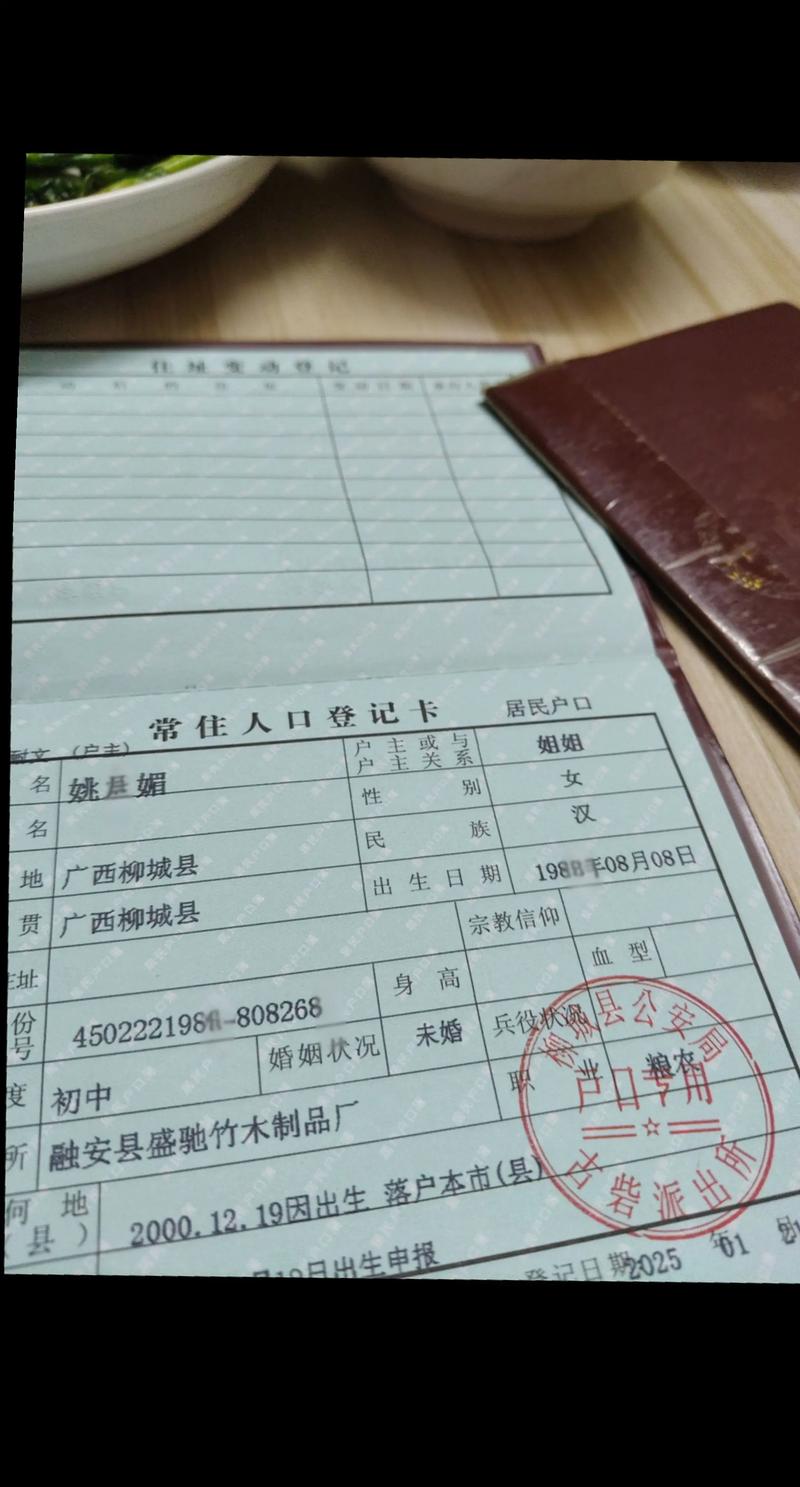 住址变动登记
常住人口登记卡 居民户口
(户主)
名 姚 媚 户主或与户主关系 姐姐
名 性别 女
地 广西柳城县 民族 汉
贯 广西柳城县 出生日期 198 年08月08日
宗教信仰
住址 身高 血型
份号 450222198 808268 婚姻状况 未婚 兵役状况
度 初中 职业 粮农
所 融安县盛驰竹木制品厂
何地(县) 2000.12.19因出生 落户本市(县)
日出生申报
登记日期 2025年01
柳城县公安局
户口专用
古砦派出所